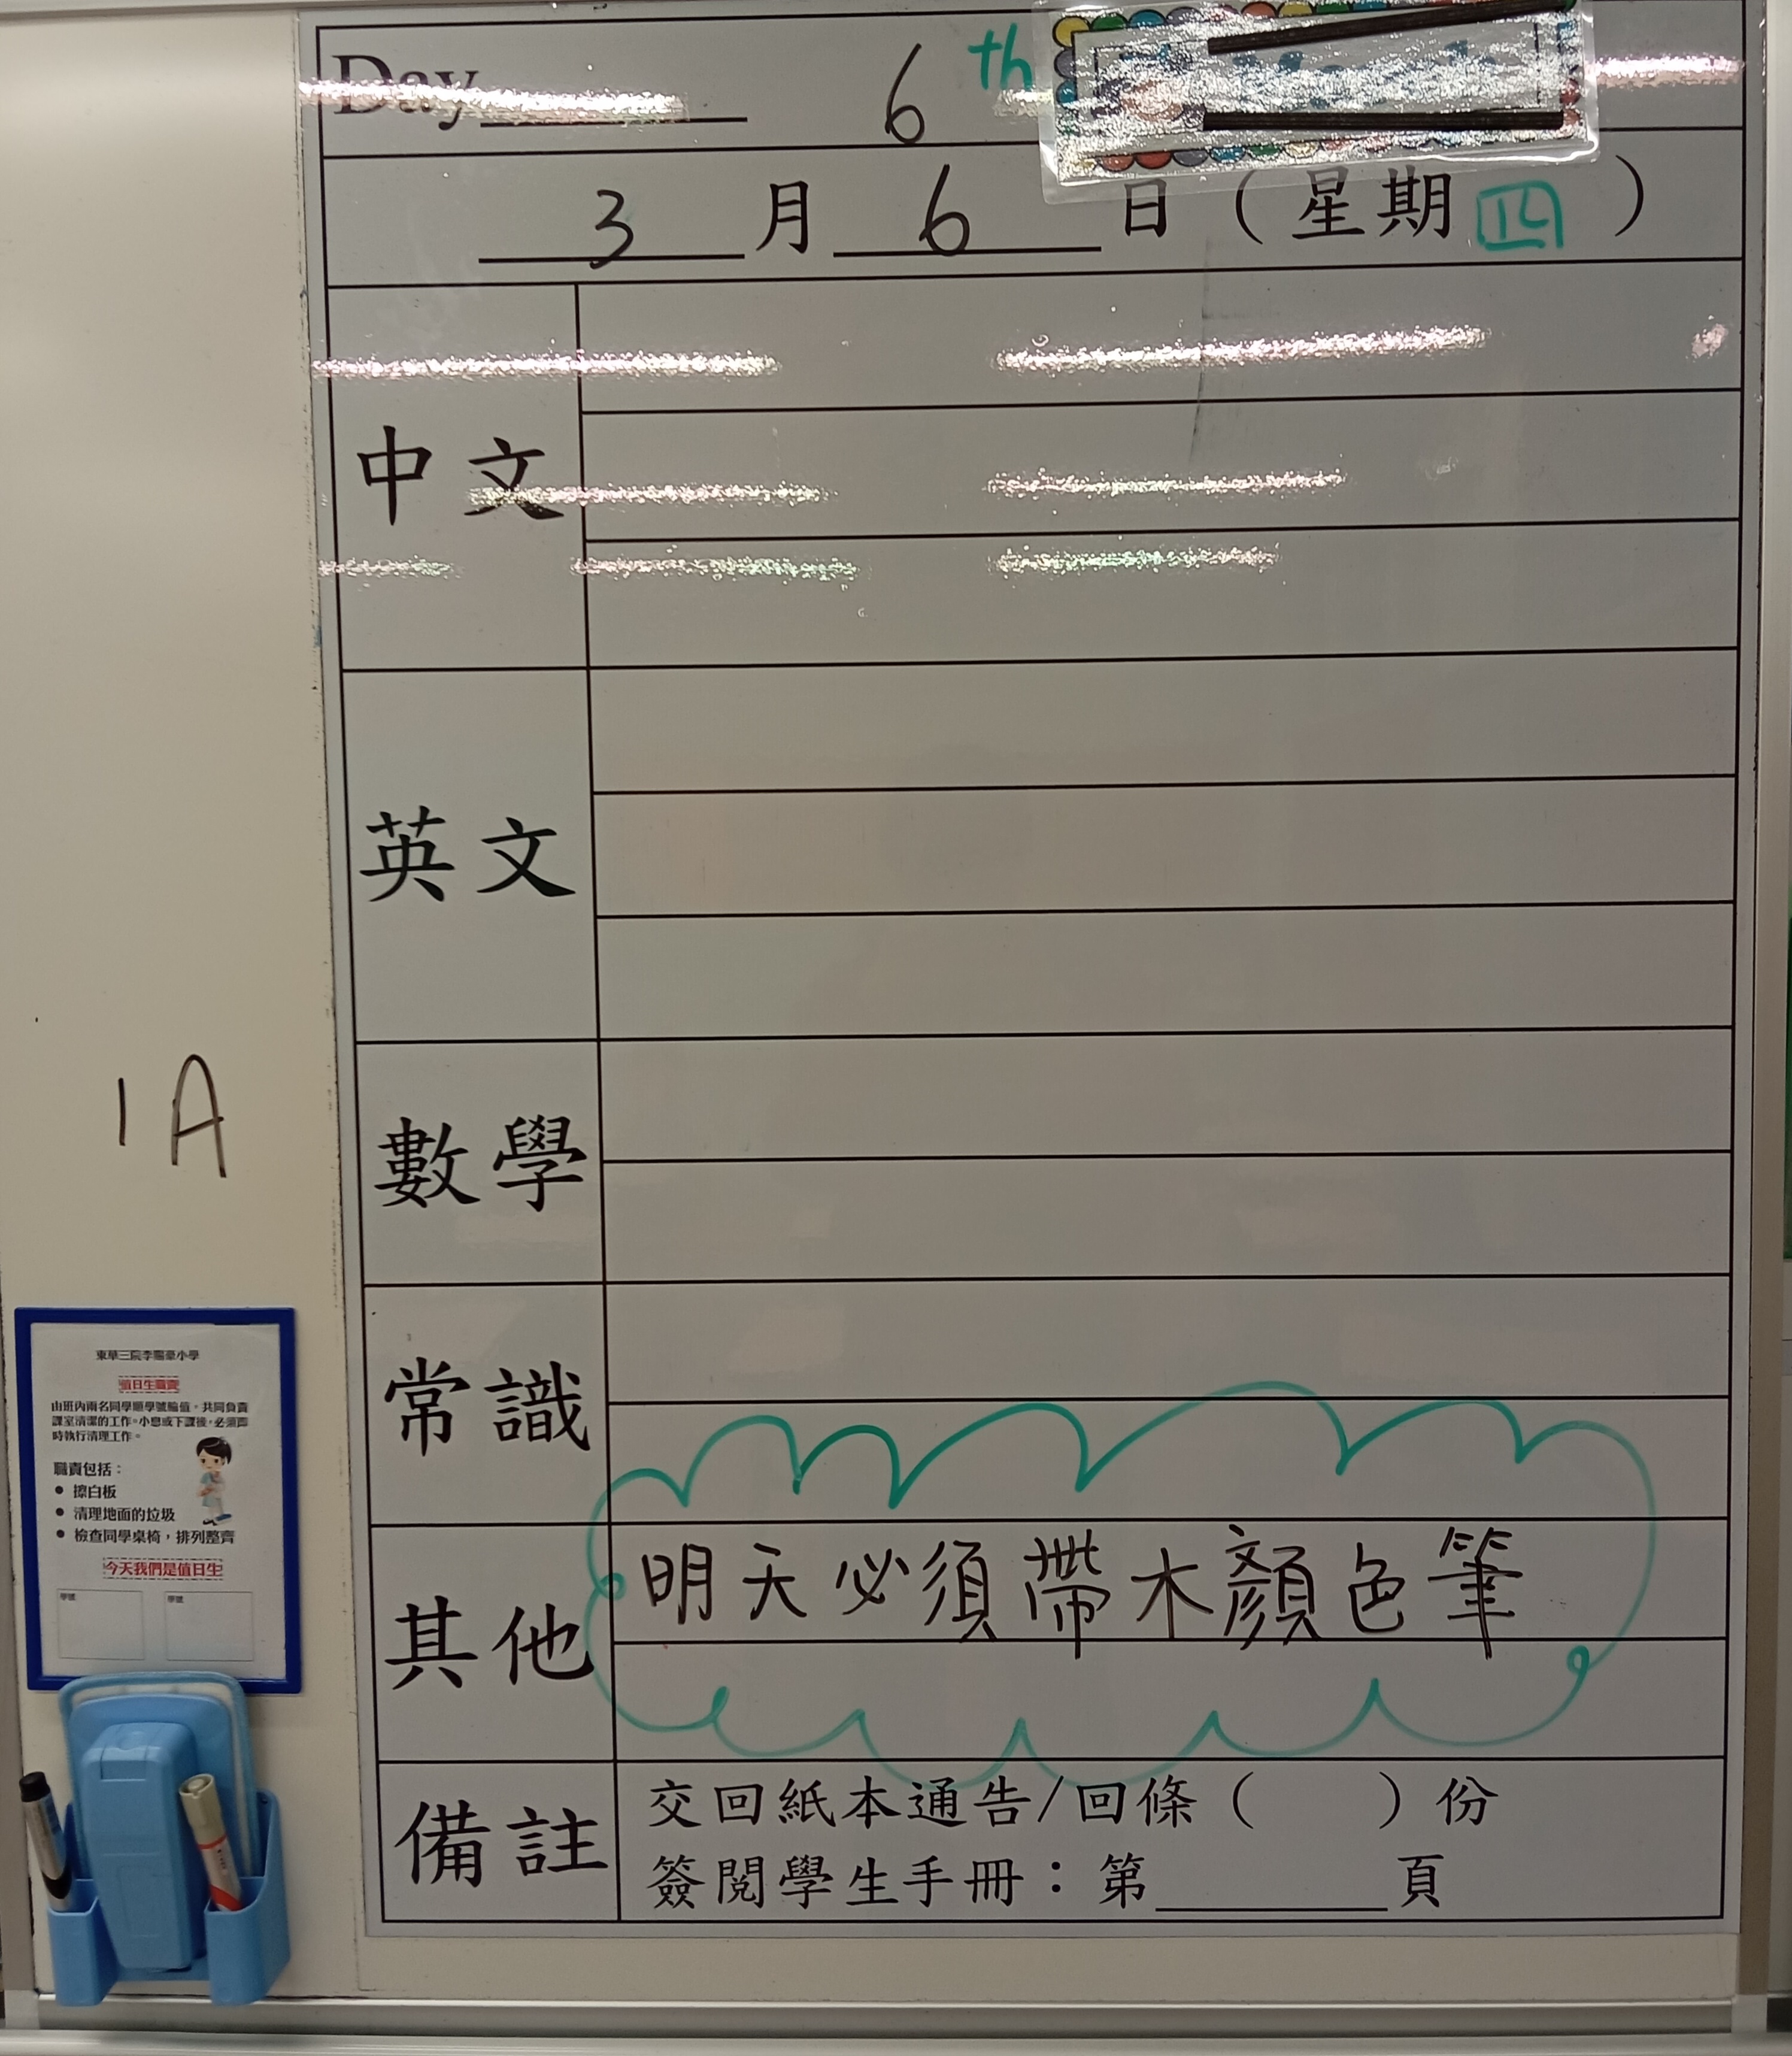 Day 6th
3月6日(星期四)
中文
英文
數學
常識
其他
明天必須帶木顏色筆
備註
交回紙本通告/回條( )份
簽閱學生手冊:第____頁
1A
東華三院李賜豪小學
值日生職責
由班內兩名同學順學號輪值。共同負責
課室清潔的工作。小息或下課後,必須即
時執行清理工作。
職責包括:
● 擦白板
● 清理地面的垃圾
● 檢查同學桌椅,排列整齊
今天我們是值日生
學號 學號